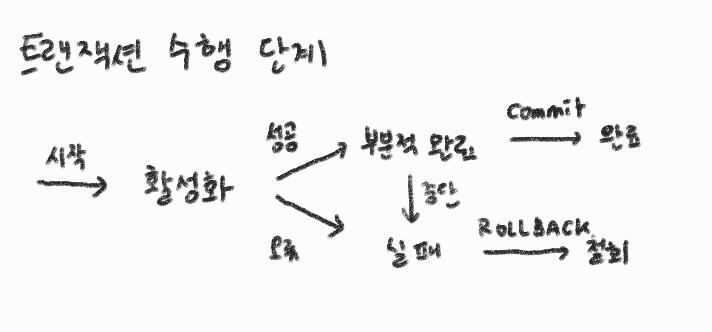 트랜잭션 수행 단계
시작
활성화
성공
부분적 완료
Commit
완료
중단
오류
실패
ROLLBACK
철회